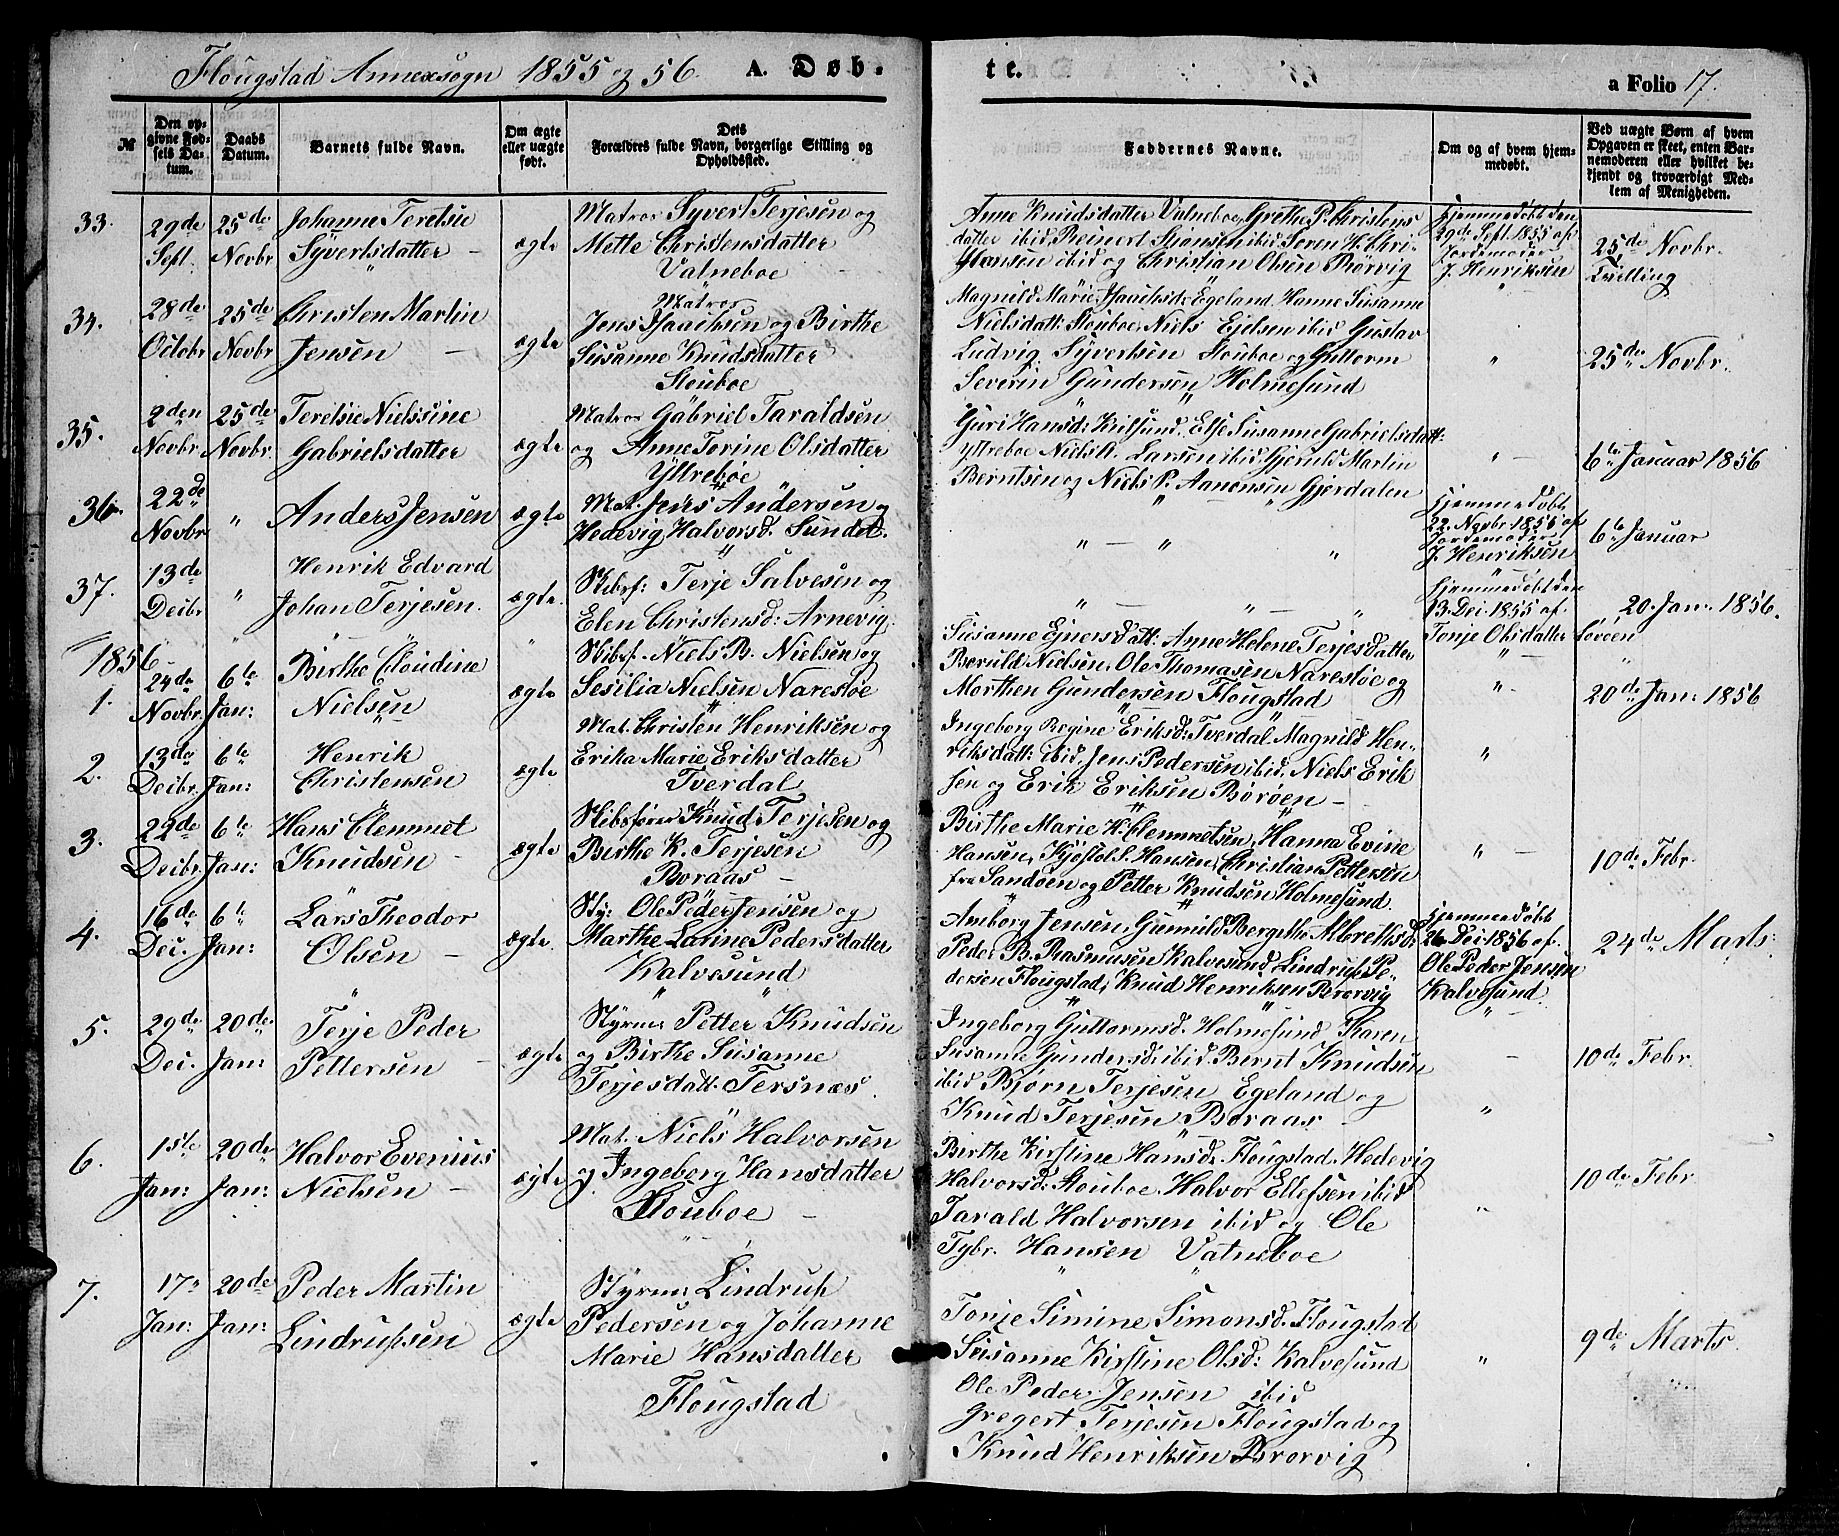 Flougstad Annexsogn 1855 og 56. A. Døb-
te.
a Folio 17.
№
Den opgivne Fødsels Datum.
Daabs Datum.
Barnets fulde Navn.
Om ægte eller uægte født.
Dets
Forældres fulde Navn, borgerlige Stilling og Opholdssted.
Faddernes Navne.
Om og af hvem hjemmedøbt.
Ved uægte Børn af hvem
Opgaven er skeet, enten Bar-
nemoderen eller hvilket be-
kjendt og troværdigt Med-
lem af Menigheden.
33.
29de Sept.
25de Novbr
Johanne Teretsie
Syvertsdatter
ægte
Matros Syvert Terjesen og
Mette Christensdatter
Valneboe
Anne Knudsdatter Valneboe, Grethe P. Christens
datter ibid, Reinert ibid Søren K. Chri-
stensen ibid og Christian Olsen Rørvig
Hjemmedøbt den
29de Sept. 1855 af
Jordemoder
J. Henriksen
25de Novbr.
Tvilling
34.
28de Octobr
25de Novbr
Christen Martin
Jensen
ægte
Matros
Jens Isaachsen og Birthe
Susanne Knudsdatter
Stouboe
Magnild Marie Isaachsd: Egeland, Hanne Susanne
Nielsdatt: Stouboe, Niels Ejelsen ibid Gustav
Ludvig Syvertsen Stouboe og Guttorm
Severin Gundersen Holmesund
"
25de Novbr.
35.
2den Novbr.
25de Novbr.
Teretsie Nielssine
Gabrielsdatter
ægte
Matros Gabriel Taraldsen
og Anne Torine Olsdatter
Yttrebøe
Guri Hansd: Kilsund, Else Susanne Gabrielsdatt:
Yttreboe Niels A. Larsen ibid Gjeruld Martin
Berntsen og Niels P. Aanonsen Gjerdalen
"
6te Januar 1856
36.
22de Novbr
"
Anders Jensen
ægte
Mat. Jens Andersen og
Hedevig Halvorsd. Sundet.
" — " "
Hjemmedøbt
22. Novbr 1856 af
Jordemoder
J. Henriksen
6te Januar
37.
13de Decbr
"
Henrik Edvard
Johan Terjesen.
ægte.
Skibsf: Terje Salvesen og
Elen Christensd: Arnevig
" — " "
Hjemmedøbt den
13. Dec. 1855 af
Tonje Olsdatter Sørøen
20. Jan. 1856.
1856
1.
24de Novbr.
6te Jan:
Birthe Claudine
Nielsen
ægte
Skibsf. Niels B. Nielsen og
Sesilia Nielsen Narestøe
Susanne Ejnersdatt: Anne Helene Terjesdatter
Beruld Nielsen, Ole Thomasen Narestøe og
Morthen Gundersen Flougstad
"
20de Jan: 1856
2.
13de Decbr.
6te Jan:
Henrik
Christensen
ægte
Mat. Christen Henriksen og
Erika Marie Eriksdatter
Tverdal
Ingeborg Regine Eriksd: Tverdal, Magnild Hen-
riksdatt: ibid, Jens Pedersen ibid, Niels Erik
sen og Erik Eriksen Borøen
"
3.
22de Decbr.
6te Jan:
Hans Clemmet
Knudsen
ægte
Skibsfører Knud Terjesen og
Birthe K. Terjesen
Boraas
Birthe Marie H. Clemmetsen, Hanna Evine
Hansen, Kjøstol S. Hansen, Christian Pettersen
fra Sandøen og Petter Knudsen Holmesund.
"
10de Febr.
4.
16de Dec.
6te Jan:
Lars Theodor
Olsen
ægte.
Sty: Ole Peder Jensen og
Marthe Larine Pedersdatter
Kalvesund
Amborg Jensen, Gunnild Bergethe Albretsd:
Peder B. Rasmusen Kalvesund, Lindrup Pe-
dersen Flougstad, Knud Henriksen Brorvig
Hjemmedøbt
26. Dec. 1856 af
Ole Peder Jensen
Kalvesund.
24de Marts.
5.
29de Dec.
20de Jan:
Terje Peder
Pettersen
ægte
Styrm: Petter Knudsen
og Birthe Susanne
Terjesdatt: Tersnæs.
Ingeborg Guttormsd. Holmesund Tharen
Susanne Gundersd: ibid. Bernt Knudsen
ibid Bjørn Terjesen Egeland og
Knud Terjesen Boraas
"
10de Febr.
6.
15te Jan:
20de Jan:
Halvor Evenius
Nielsen
ægte
Mat. Niels Halvorsen
og Ingeborg Hansdatter
Stouboe
Birthe Kirstine Hansd: Flougstad, Hedevig
Halvorsd: Stouboe, Halvor Ellefsen ibid
Tarald Halvorsen ibid og Ole
Tybr. Hansen Vatneboe
"
10de Febr.
7.
17" Jan:
20de Jan:
Peder Martin
Lindrupsen
ægte
Styrm: Lindrup
Pedersen og Johanne
Marie Hansdatter
Flougstad
Tonje Simine Simonsd. Flougstad
Susanne Kirstine Olsd: Kalvesund
Ole Peder Jensen ibid
Gregert Terjesen Flougstad og
Knud Henriksen Brorvig
"
9de Marts.